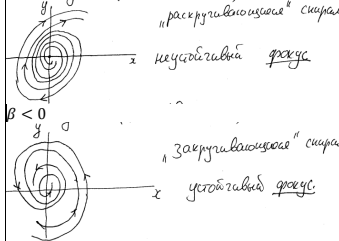 y
„раскручивающаяся" спирал
x
неустойчивый фокус
β < 0
y
„закручивающаяся" спирал
x
устойчивый фокус.